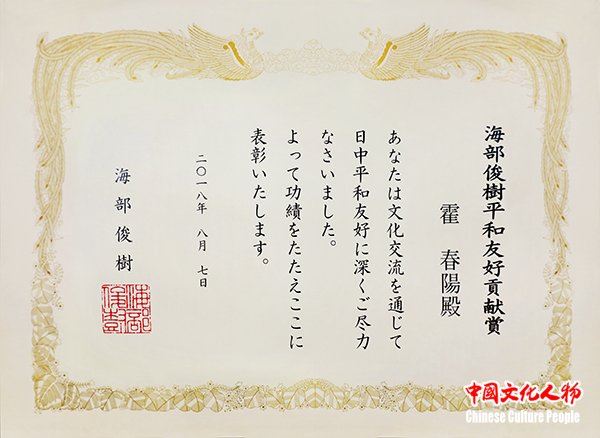 海部俊樹平和友好貢献賞
霍 春陽殿
あなたは文化交流を通じて
日中平和友好に深くご尽力
なさいました。
よって功績をたたえここに
表彰いたします。
二〇一八年 八月 七日
海部俊樹
中國文化人物
Chinese Culture People